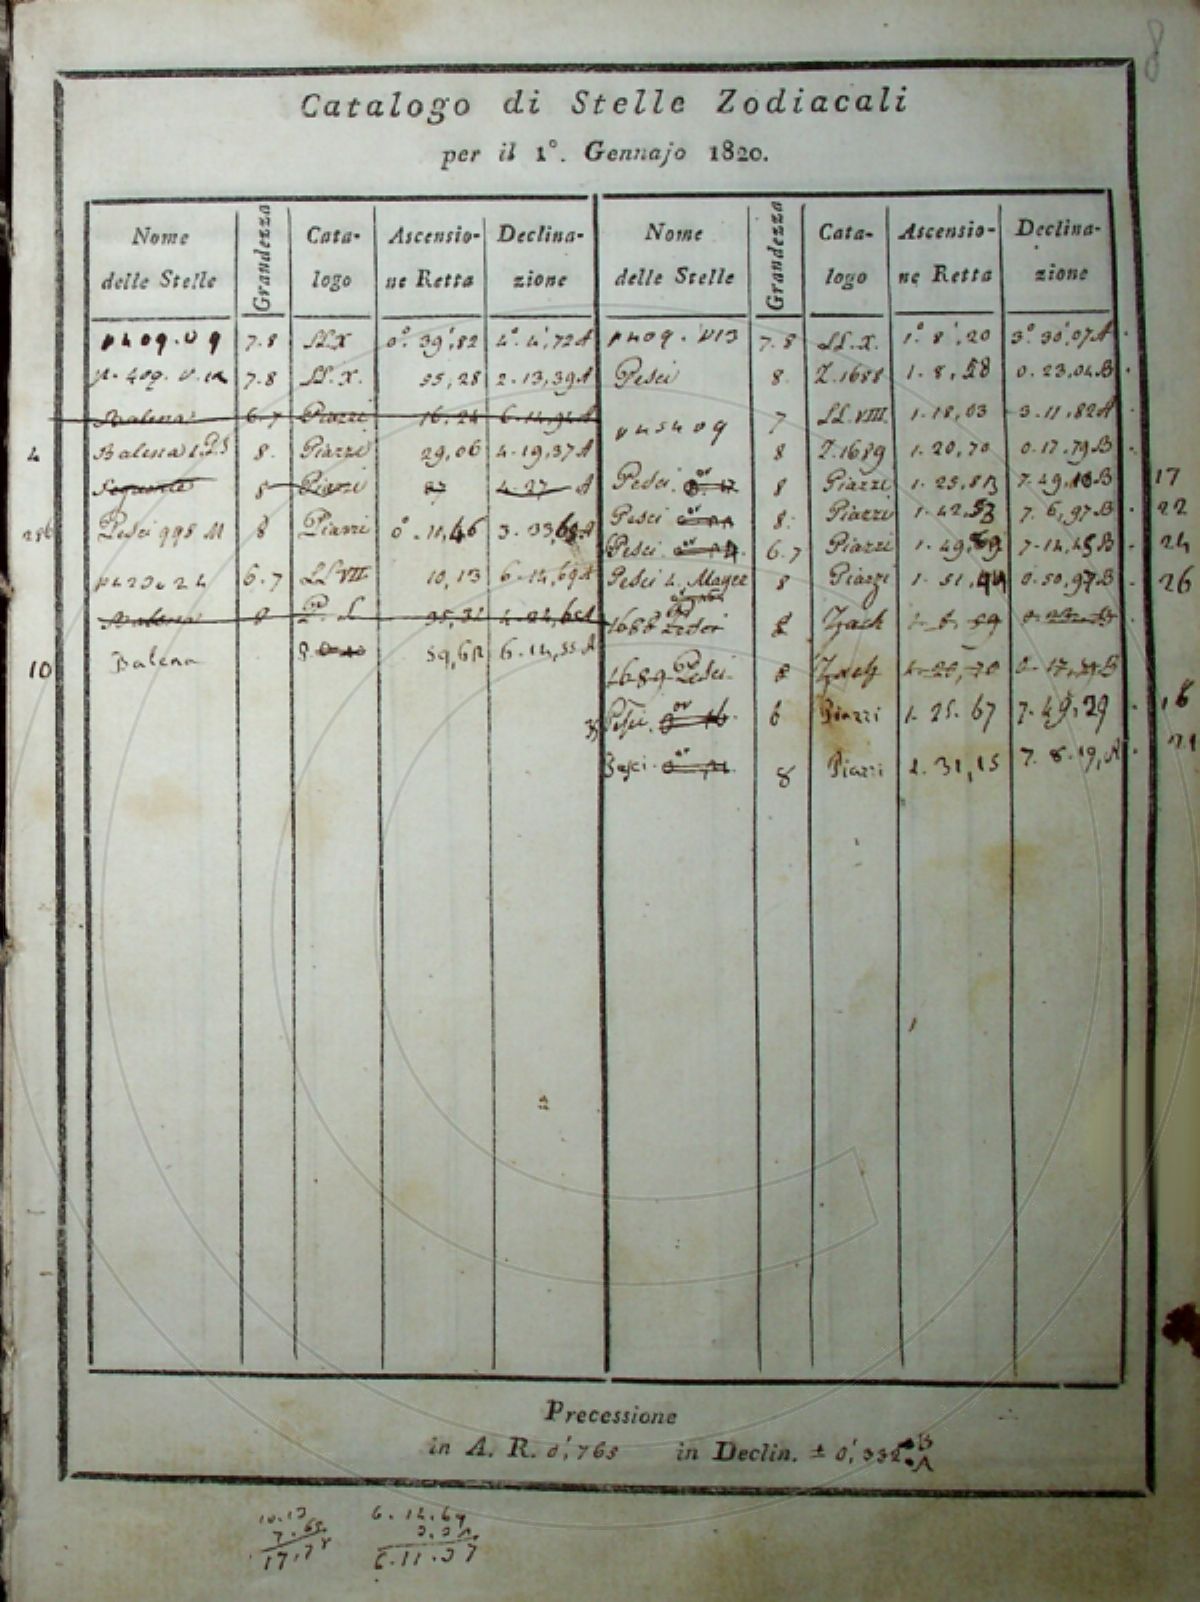 8
Catalogo di Stelle Zodiacali
per il 1°. Gennajo 1820.
Nome delle Stelle Grandezza Cata-logo Ascensio-ne Retta Declina-zione Nome delle Stelle Grandezza Cata-logo Ascensio-ne Retta Declina-zione
7.8 LL.X 0°. 39',82 4°. 4',72 A
7.8 LL.X. 55,28 2.13,39 A
Balena 6.7 Piazzi 16.24 6.14,94 A
4 Balena 8. Piazzi 29,06 4.19,37 A
Seguente 8 Piazzi 4.27 A
Pesci 995 M 8 Piazzi 0. 11,46 3.33,68 A
6.7 LL VII 10,13 6.14,69 A
Balena 8 35,31 4.24,65 A
10 Balena 8 59,62 6.14,55 A
7.8 LL.X. 1°. 8',20 3°. 30',07 A
Pesci 8. Z.1688 1.8,58 0.23,04 B
7 LL.VIII. 1.18,03 3.11,82 A
8 Z.1689 1.20,70 0.17,79 B
Pesci 8 Piazzi 1.25,83 7.49,18 B 17
Pesci 8. Piazzi 1.42,53 7.6,97 B 22
Pesci 6.7 Piazzi 1.49,89 7.14,45 B 24
Pesci 4. Mayer 8 Piazzi 1.51,44 0.50,97 B 26
1688 Pesci 8 Zach
1689 Pesci 8 Zach 1.20,70 0.17,79 B
Pesci 6 Piazzi 1.25.67 7.49,29 18
Pesci 8 Piazzi 1.31,15 7.8.19, A 21
Precessione
in A. R. 0',765 in Declin. ± 0',332 B A
10.13 6.14.69
7.65
17.78 6.11.37